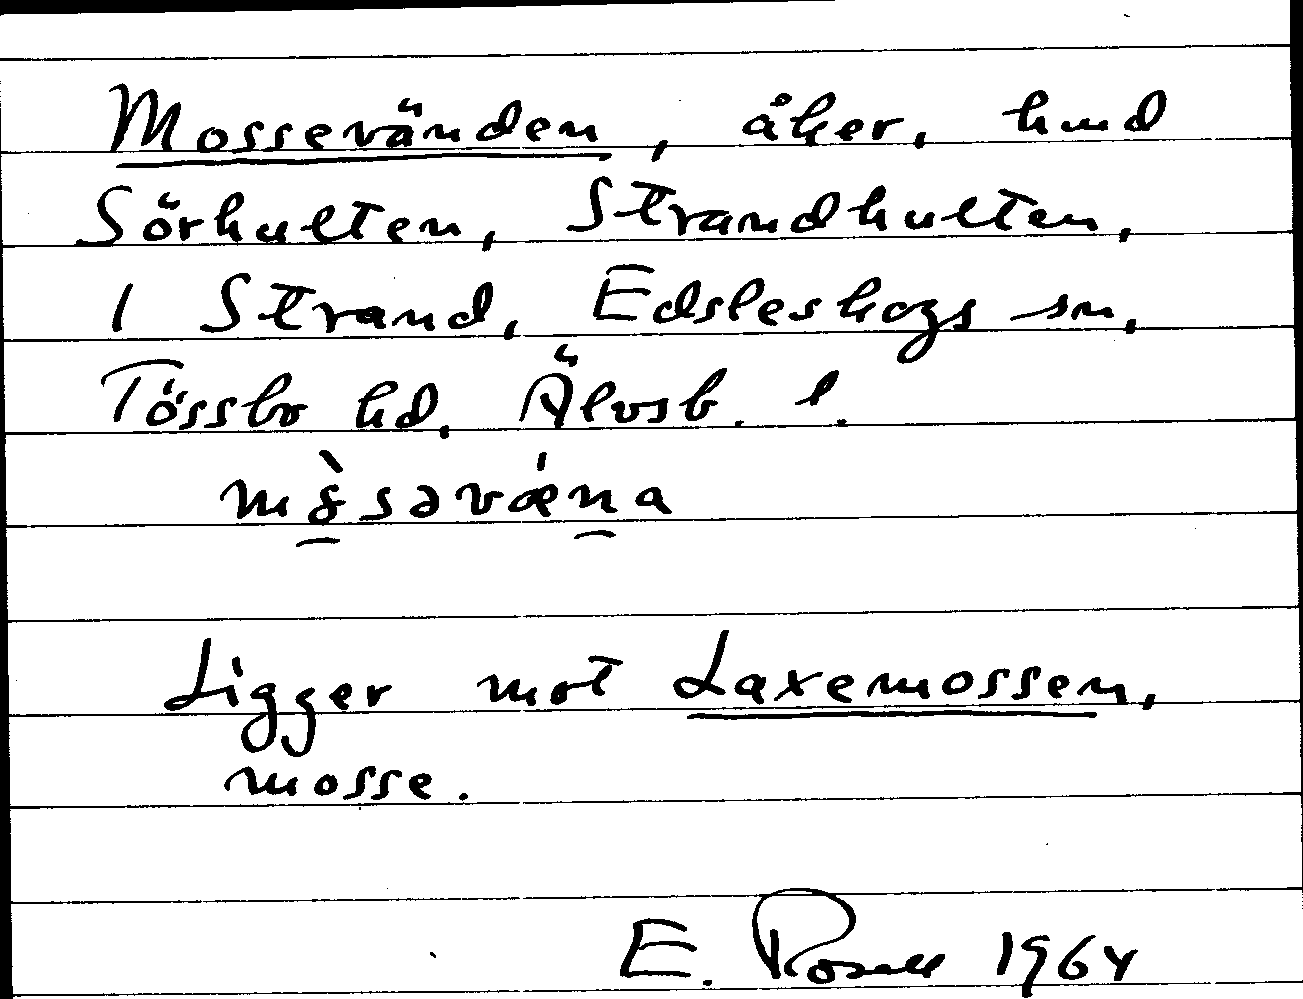 Mossevänden, åker, hmd
Sörhulten, Strandhulten,
1 Strand, Edsleskogs sn,
Tössbo hd, Älvsb. l.
Ligger mot Laxemossen,
mosse.
E. Rosell 1964